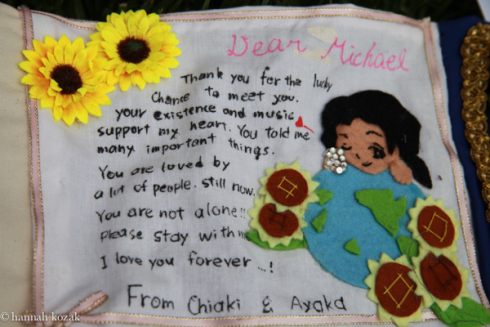 Dear Michael
Thank you for the lucky
Chance to meet you.
your existence and music
support my heart. You told me
many important things.
You are loved by
a lot of people. still now.
You are not alone!!
Please stay with me
I love you forever...!
From Chiaki & Ayaka
© hannah kozak